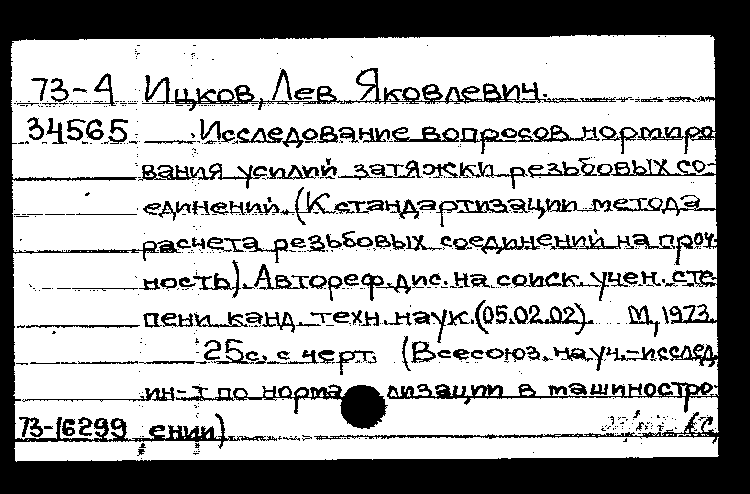 73-4 Ицков, Лев Яковлевич.
34565 Исследование вопросов нормиро
вания усилий затяжки резьбовых со-
единений. (К стандартизации метода
расчета резьбовых соединений на проч-
ность). Автореф. дис. на соиск. учен. сте
пени канд. техн. наук. (05.02.02). М., 1973.
25с. с черт. (Всесоюз. науч.-исслед.
ин-т по норма лизации в машинострo-
73-16299 ении)